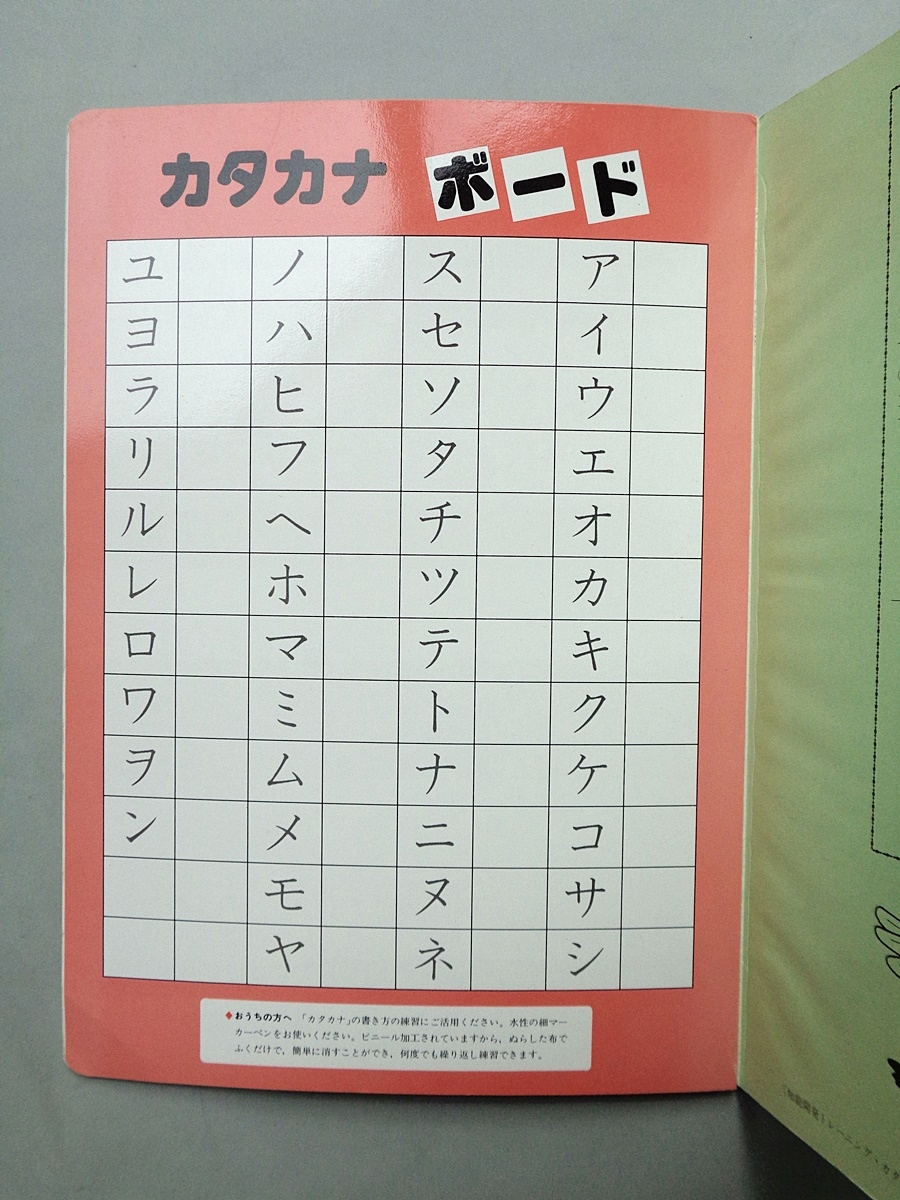 カタカナ ボード
アイウエオカキクケコサシ
スセソタチツテトナニヌネ
ノハヒフヘホマミムメモヤ
ユヨラリルレロワヲン
◆おうちの方へ 「カタカナ」の書き方の練習にご活用ください。水性の細マー
カーペンをお使いください。ビニール加工されていますから、ぬらした布で
ふくだけで、簡単に消すことができ、何度でも繰り返し練習できます。